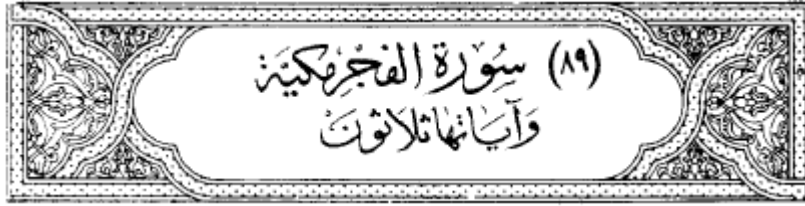 (٨٩) سُورَة الفَجْرِ مَكيَّة
وَآيَاتهَا ثَلاثونَ